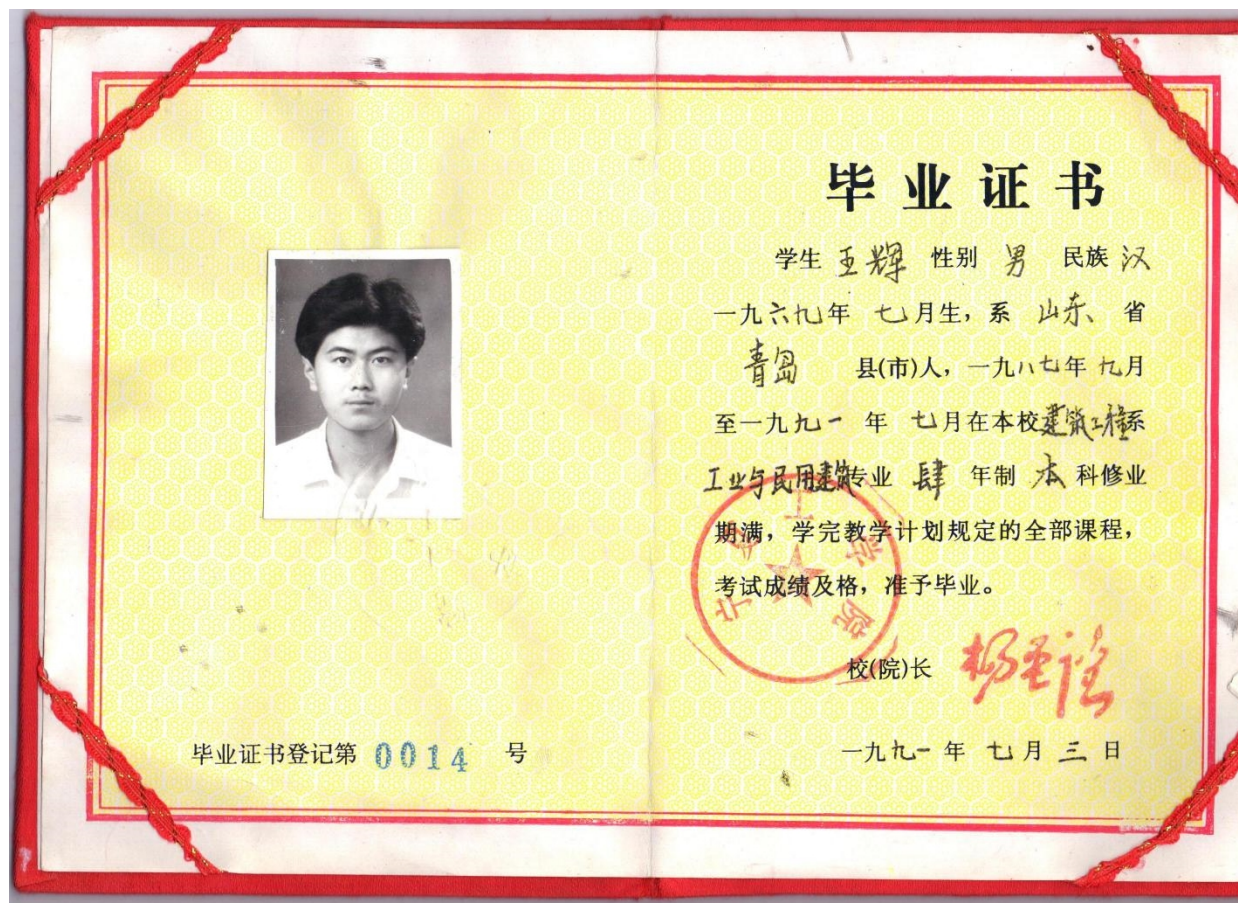 毕业证书
学生 王辉 性别 男 民族 汉
一九六九年 七月生，系 山东 省
青岛 县(市)人，一九八七年 九月
至一九九一 年 七月在本校建筑工程系
工业与民用建筑专业 肆 年制 本 科修业
期满，学完教学计划规定的全部课程，
考试成绩及格，准予毕业。
校(院)长
一九九一 年 七 月 三 日
毕业证书登记第 0014 号